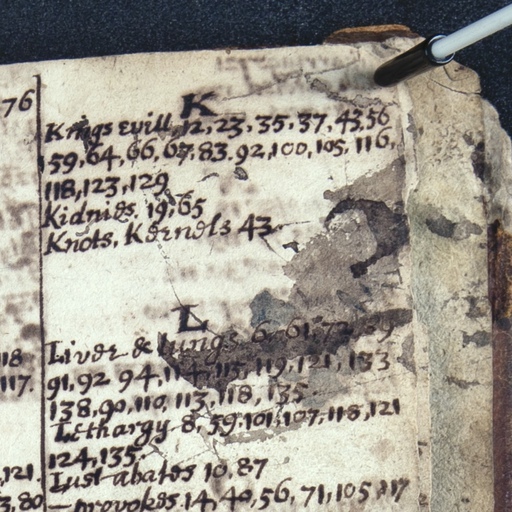 76
K
Kings evill, 12, 23, 35, 37, 43, 56
59, 64, 66, 67, 83, 92, 100, 105, 116,
118, 123, 129
Kidnies. 19, 65
Knots, Kernels 43
L
18
Liver & lungs 6, 61, 72, 89
117.
91, 92 94, 114, 115, 119, 121, 133
138, 90, 110, 113, 118, 135
Lethargy 8, 59, 101, 107, 118, 121
121.
124, 135.
Lust abates 10, 87
3, 80
— provokes. 14, 40, 56, 71, 105, 117